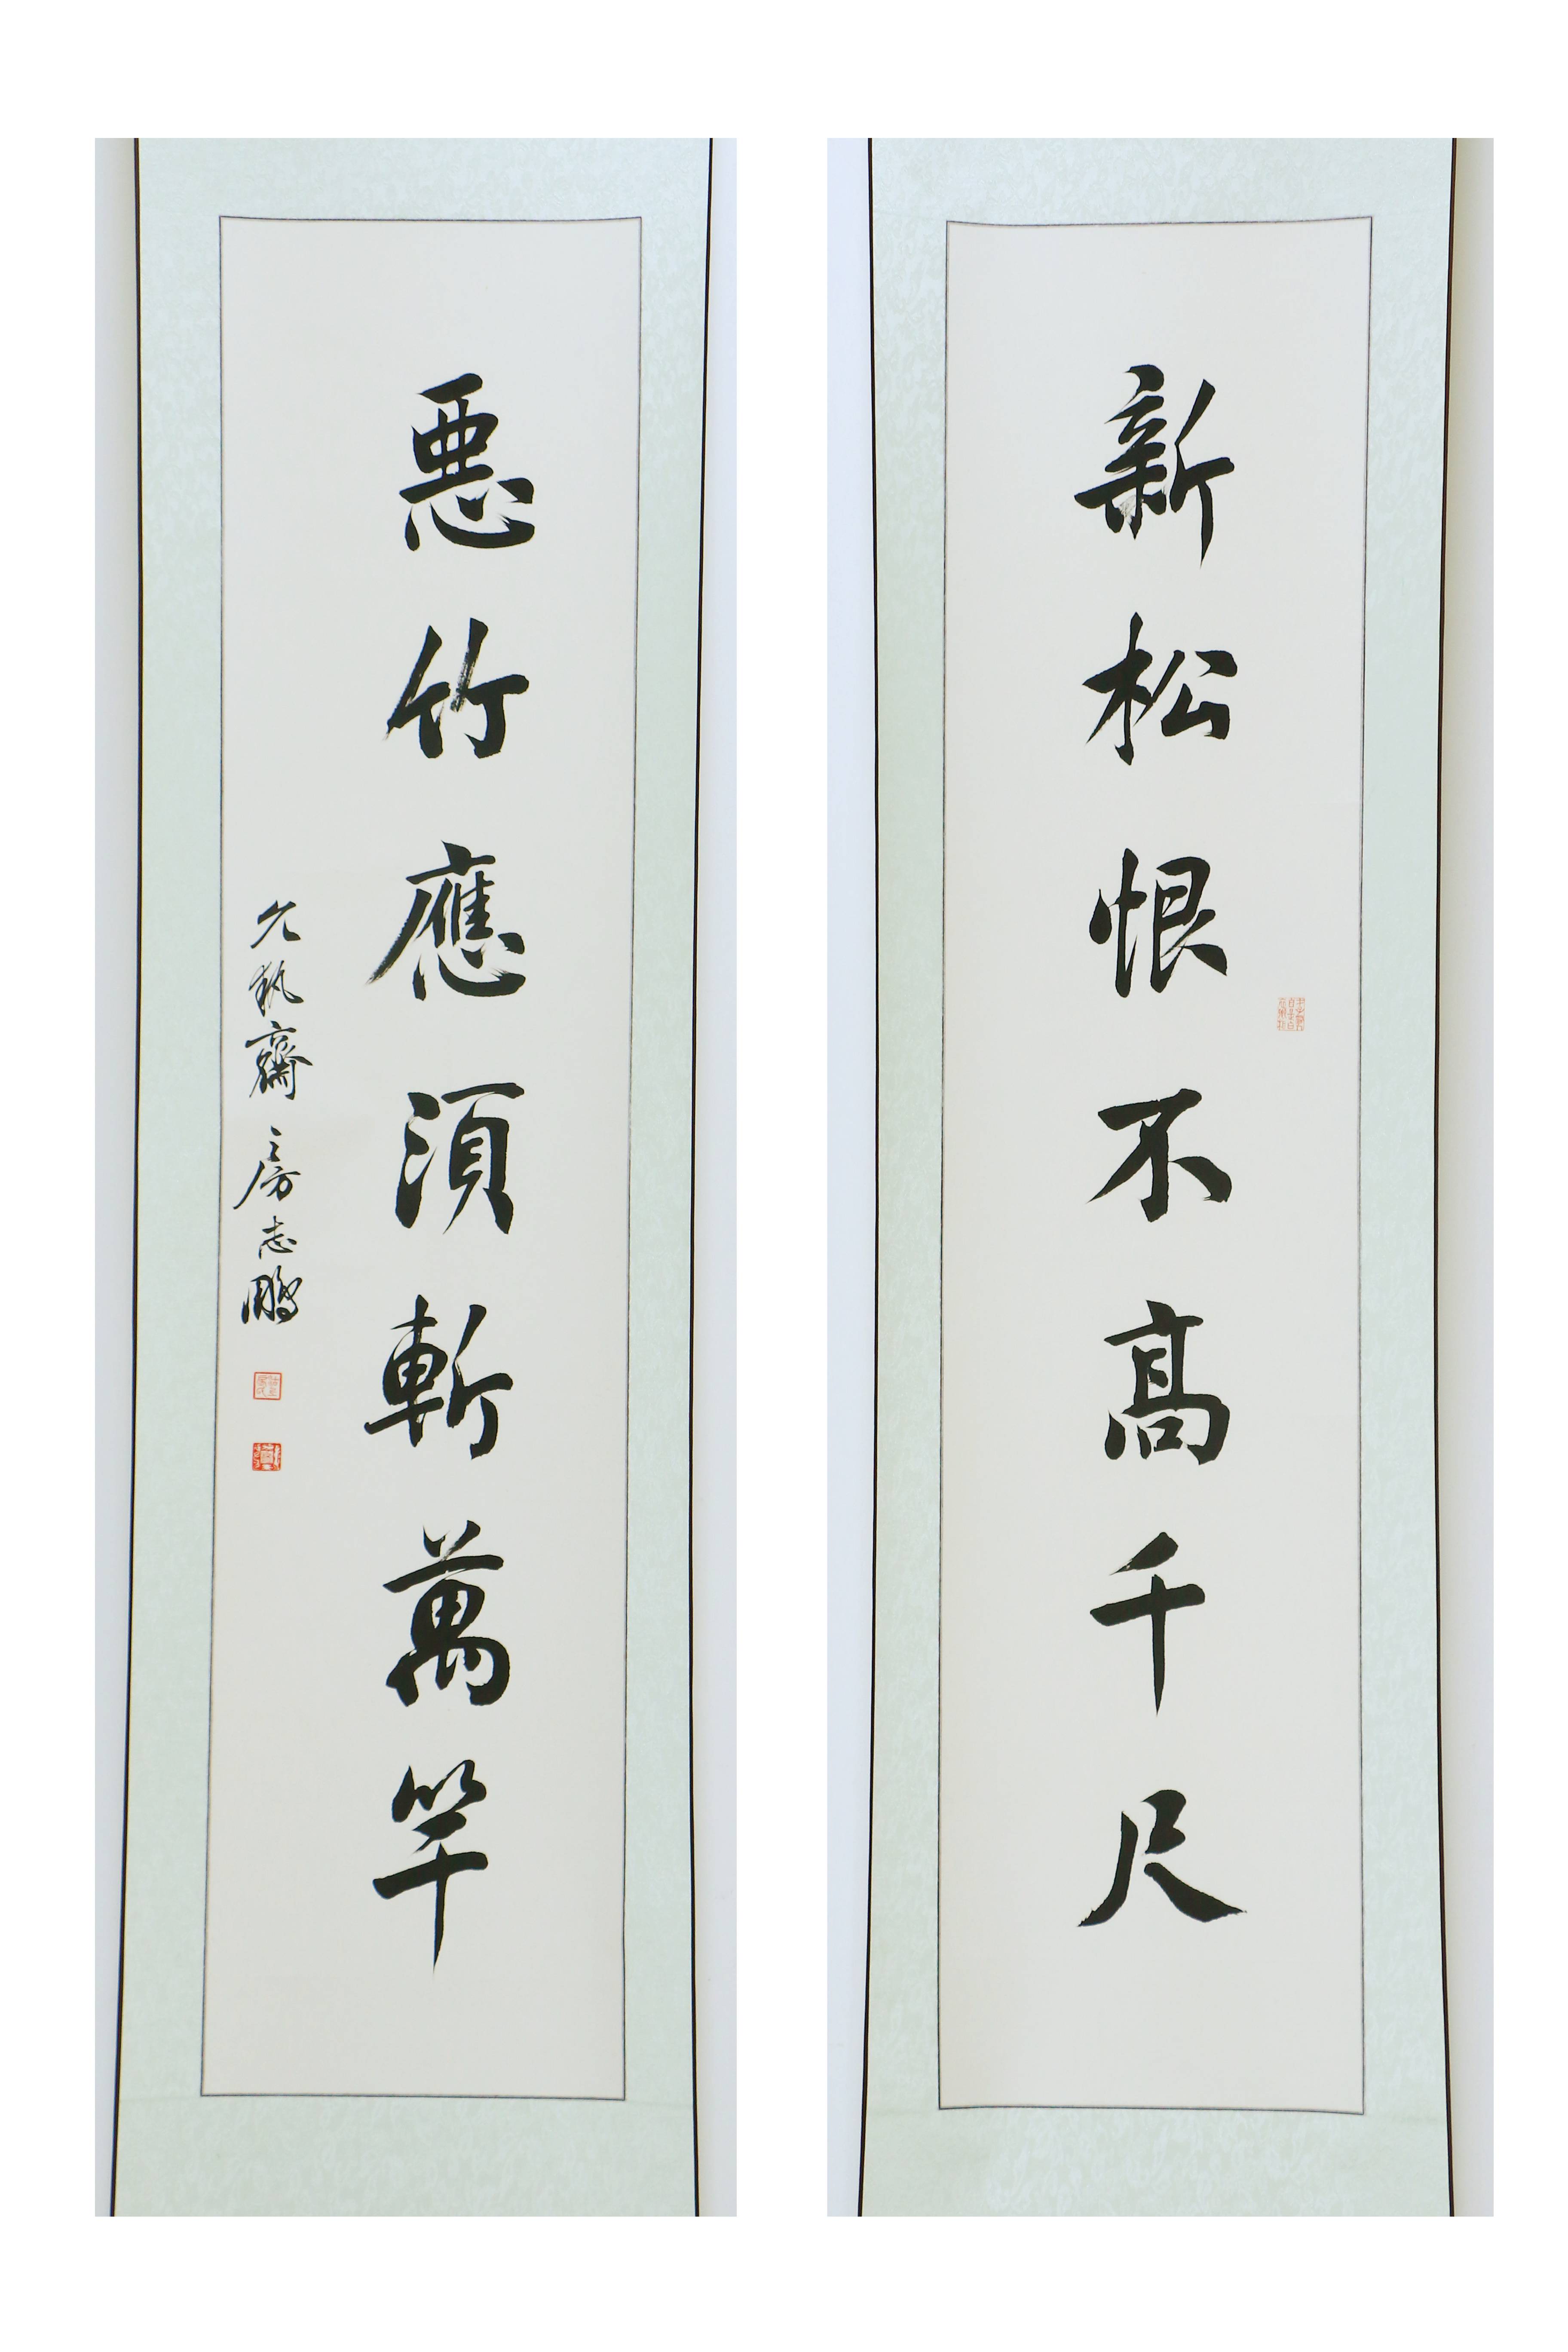 新松恨不高千尺
惡竹應須斬萬竿
允執齋主房志鵬